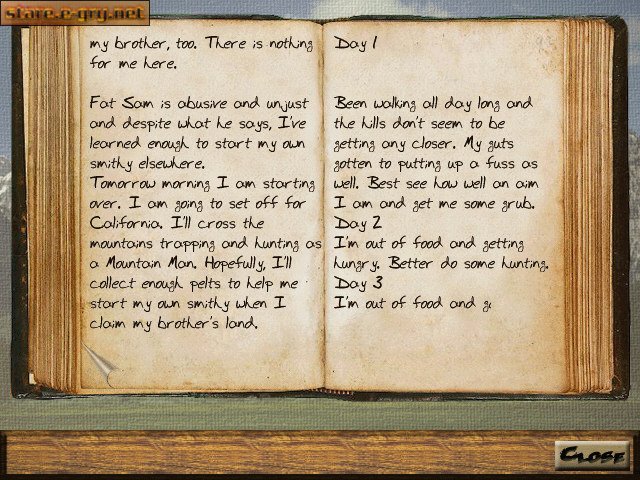 stare.e-gry.net
my brother, too. There is nothing
for me here.
Fat Sam is abusive and unjust
and despite what he says, I've
learned enough to start my own
smithy elsewhere.
Tomorrow morning I am starting
over. I am going to set off for
California. I'll cross the
mountains trapping and hunting as
a Mountain Man. Hopefully, I'll
collect enough pelts to help me
start my own smithy when I
claim my brother's land.
Day 1
Been walking all day long and
the hills don't seem to be
getting any closer. My guts
gotten to putting up a fuss as
well. Best see how well an aim
I am and get me some grub.
Day 2
I'm out of food and getting
hungry. Better do some hunting.
Day 3
I'm out of food and
Close